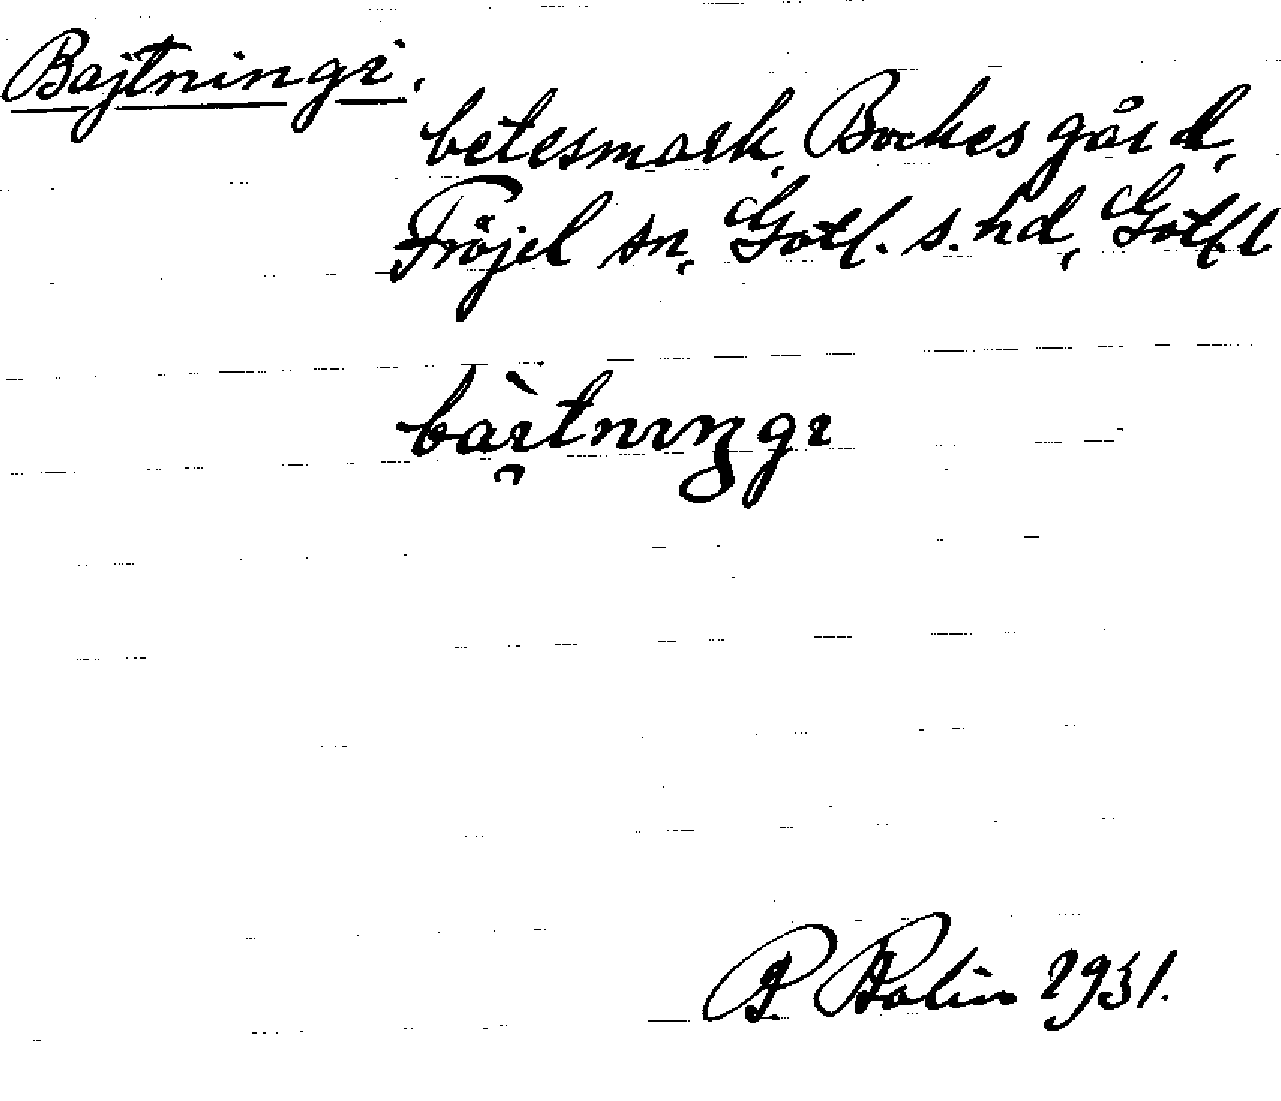 Bajtningi.
betesmark, Bockes gård,
Fröjel sn, Gotl. s. hd, Gotl. l.
bàı̯tnıŋgı
1931.